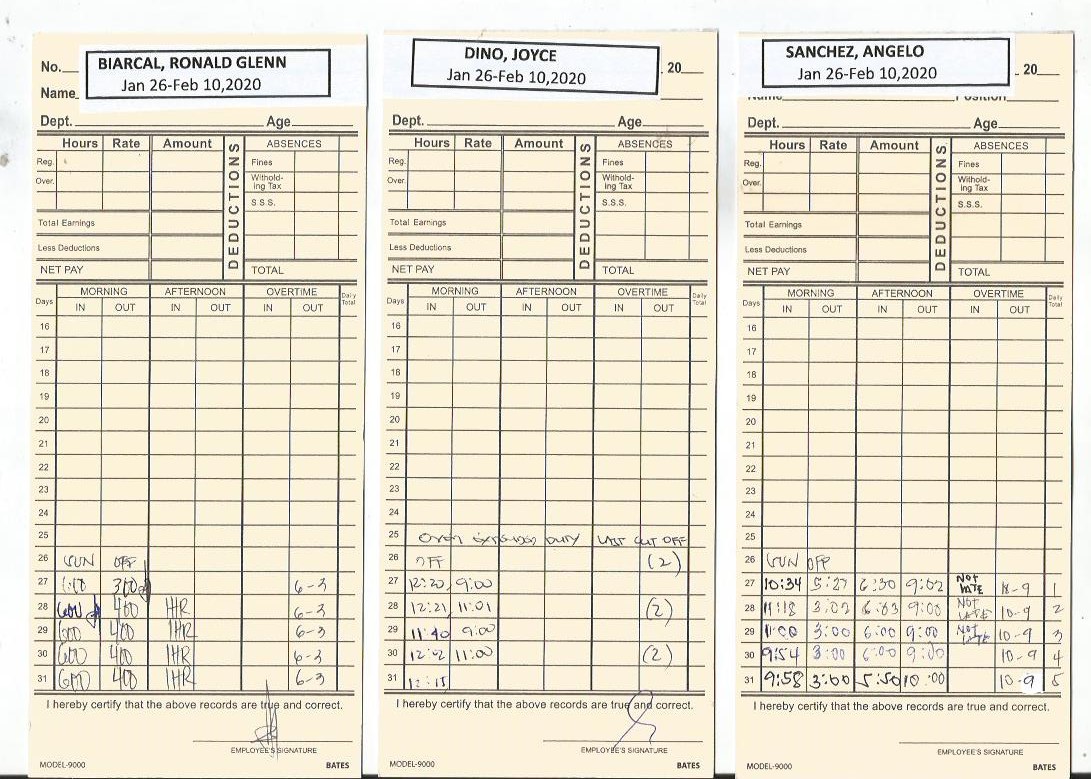 No.
BIARCAL, RONALD GLENN
Jan 26-Feb 10,2020
Name
Dept. Age
Hours Rate Amount DEDUCTIONS ABSENCES
Reg. Fines
Over. Withold-
ing Tax
S.S.S.
Total Earnings
Less Deductions
NET PAY TOTAL
Days MORNING AFTERNOON OVERTIME Daily Total
IN OUT IN OUT IN OUT
16
17
18
19
20
21
22
23
24
25
26 SUN OFF
27 300 6-3
28 600 400 1HR 6-3
29 600 400 1HR 6-3
30 600 400 1HR 6-3
31 600 400 1HR 6-3
I hereby certify that the above records are true and correct.
EMPLOYEE'S SIGNATURE
MODEL-9000 BATES
DINO, JOYCE
Jan 26-Feb 10,2020
20
Dept. Age
Hours Rate Amount DEDUCTIONS ABSENCES
Reg. Fines
Over. Withold-
ing Tax
S.S.S.
Total Earnings
Less Deductions
NET PAY TOTAL
Days MORNING AFTERNOON OVERTIME Daily Total
IN OUT IN OUT IN OUT
16
17
18
19
20
21
22
23
24
25 duty LAST CUT OFF
26 OFF (2)
27 12:20 9:00
28 12:21 11:01 (2)
29 11:40 9:00
30 12:02 11:00 (2)
31 12:15
I hereby certify that the above records are true and correct.
EMPLOYEE'S SIGNATURE
MODEL-9000 BATES
SANCHEZ, ANGELO
Jan 26-Feb 10,2020
20
Name Position
Dept. Age
Hours Rate Amount DEDUCTIONS ABSENCES
Reg. Fines
Over. Withold-
ing Tax
S.S.S.
Total Earnings
Less Deductions
NET PAY TOTAL
Days MORNING AFTERNOON OVERTIME Daily Total
IN OUT IN OUT IN OUT
16
17
18
19
20
21
22
23
24
25
26 SUN OFF
27 10:34 5:27 6:30 9:02 NOT LATE 1
28 11:18 3:02 6:03 9:00 NOT LATE 10-9 2
29 11:00 3:00 6:00 9:00 NOT LATE 10-9 3
30 9:54 3:00 6:00 9:00 10-9 4
31 9:58 3:00 5:50 10:00 10-9 5
I hereby certify that the above records are true and correct.
EMPLOYEE'S SIGNATURE
MODEL-9000 BATES